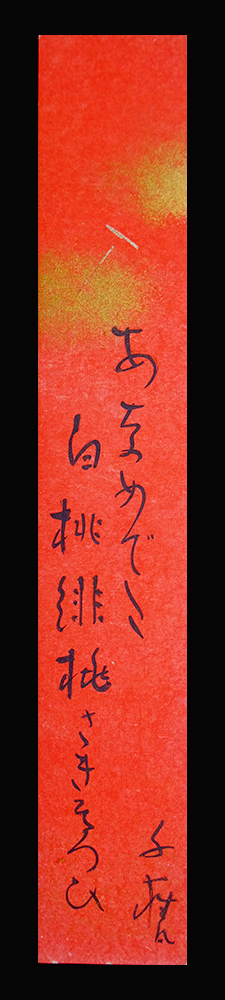 あなめでた
白桃緋桃さきそろひ